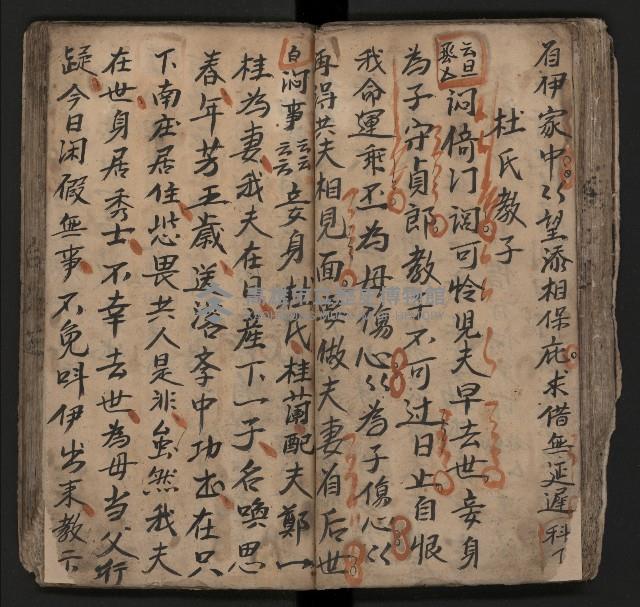 有伊家中〻望添相保庇求借無延遲科下
杜氏教子
云旦
悶倚门调可怜児夫早去世妾身
為子守貞郎教子不可过日止自恨
我命運乖不為母傷心〻為子傷心〻
再得共夫相見面要做夫妻有后世
白悶事云云妾身杜氏桂蘭配夫鄭一
桂為妻我夫在日產下一子名喚思
春年芳五歲送落李中功出在只
下南庄居住恐畏共人是非虽然我夫
在世身居秀士不幸去世為母当父行
踨今日闲假無事不免呌伊出来教示
高雄市立歷史博物館
KAOHSIUNG MUSEUM OF HISTORY